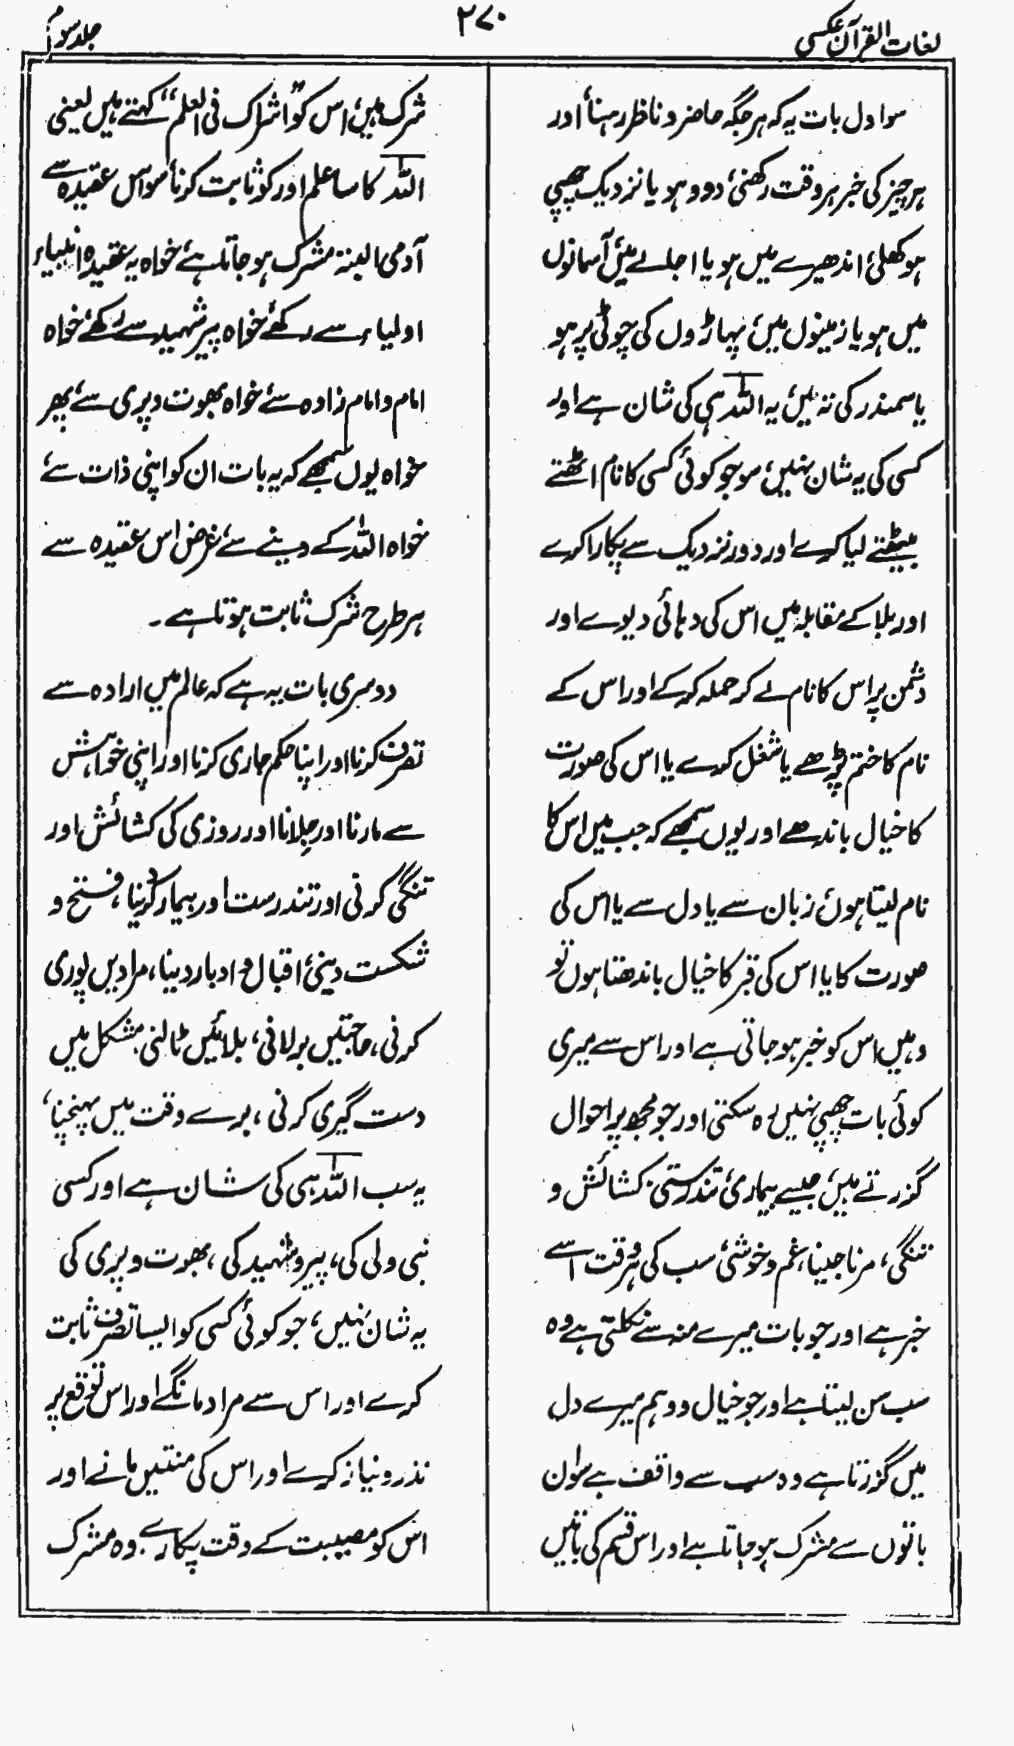 لغات القرآن عکسی
۲۷۰
جلد سوم
سو اول بات یہ کہ ہر جگہ حاضر و ناظر رہنا، اور
ہر چیز کی خبر ہر وقت رکھنی، دور ہو یا نزدیک چھپی
ہو کھلی، اندھیرے میں ہو یا اجالے میں، آسمانوں
میں ہو یا زمینوں میں، پہاڑوں کی چوٹی پر ہو
یا سمندر کی تہ میں، یہ اللہ ہی کی شان ہے اور
کسی کی یہ شان نہیں، سو جو کوئی کسی کا نام اٹھتے
بیٹھتے لیا کرے اور دور نزدیک سے پکارا کرے
اور بلا کے مقابلہ میں اس کی دہائی دیوے اور
دشمن پر اس کا نام لے کر حملہ کرے اور اس کے
نام کا ختم پڑھے یا شغل کرے یا اس کی صورت
کا خیال باندھے اور یوں سمجھے کہ جب میں اس کا
نام لیتا ہوں، زبان سے یا دل سے یا اس کی
صورت کا یا اس کی قبر کا خیال باندھتا ہوں تو
وہیں اس کو خبر ہو جاتی ہے اور اس سے میری
کوئی بات چھپی نہیں رہ سکتی اور جو مجھ پر احوال
گزرتے ہیں، جیسے بیماری، تندرستی، کشائش و
تنگی، مرنا جینا، غم و خوشی، سب کی ہر وقت اسے
خبر ہے اور جو بات میرے منہ سے نکلتی ہے وہ
سب سن لیتا ہے اور جو خیال و وہم میرے دل
میں گزرتا ہے وہ سب سے واقف ہے سو ان
باتوں سے مشرک ہو جاتا ہے اور اس قسم کی باتیں
شرک ہیں، اس کو "اشراک فی العلم" کہتے ہیں یعنی
اللہ کا سا علم اور کو ثابت کرنا، سو اس عقیدہ سے
آدمی البتہ مشرک ہو جاتا ہے، خواہ یہ عقیدہ انبیاء
اولیاء سے رکھے، خواہ پیر شہید سے رکھے، خواہ
امام و امام زادہ سے، خواہ بھوت و پری سے، پھر
خواہ یوں سمجھے کہ یہ بات ان کو اپنی ذات سے
خواہ اللہ کے دینے سے، غرض اس عقیدہ سے
ہر طرح شرک ثابت ہوتا ہے۔
دوسری بات یہ ہے کہ عالم میں ارادہ سے
تصرف کرنا اور اپنا حکم جاری کرنا اور اپنی خواہش
سے مارنا اور جِلانا اور روزی کی کشائش اور
تنگی کرنی اور تندرست اور بیمار کر دینا، فتح و
شکست دینی، اقبال و ادبار دینا، مرادیں پوری
کرنی، حاجتیں بر لانی، بلائیں ٹالنی مشکل میں
دست گیری کرنی، برے وقت میں پہنچنا،
یہ سب اللہ ہی کی شان ہے اور کسی
نبی و ولی کی، پیر و شہید کی، بھوت و پری کی
یہ شان نہیں، جو کوئی کسی کو ایسا تصرف ثابت
کرے اور اس سے مراد مانگے اور اس توقع پر
نذر و نیاز کرے اور اس کی منتیں مانے اور
اس کو مصیبت کے وقت پکارے، وہ مشرک